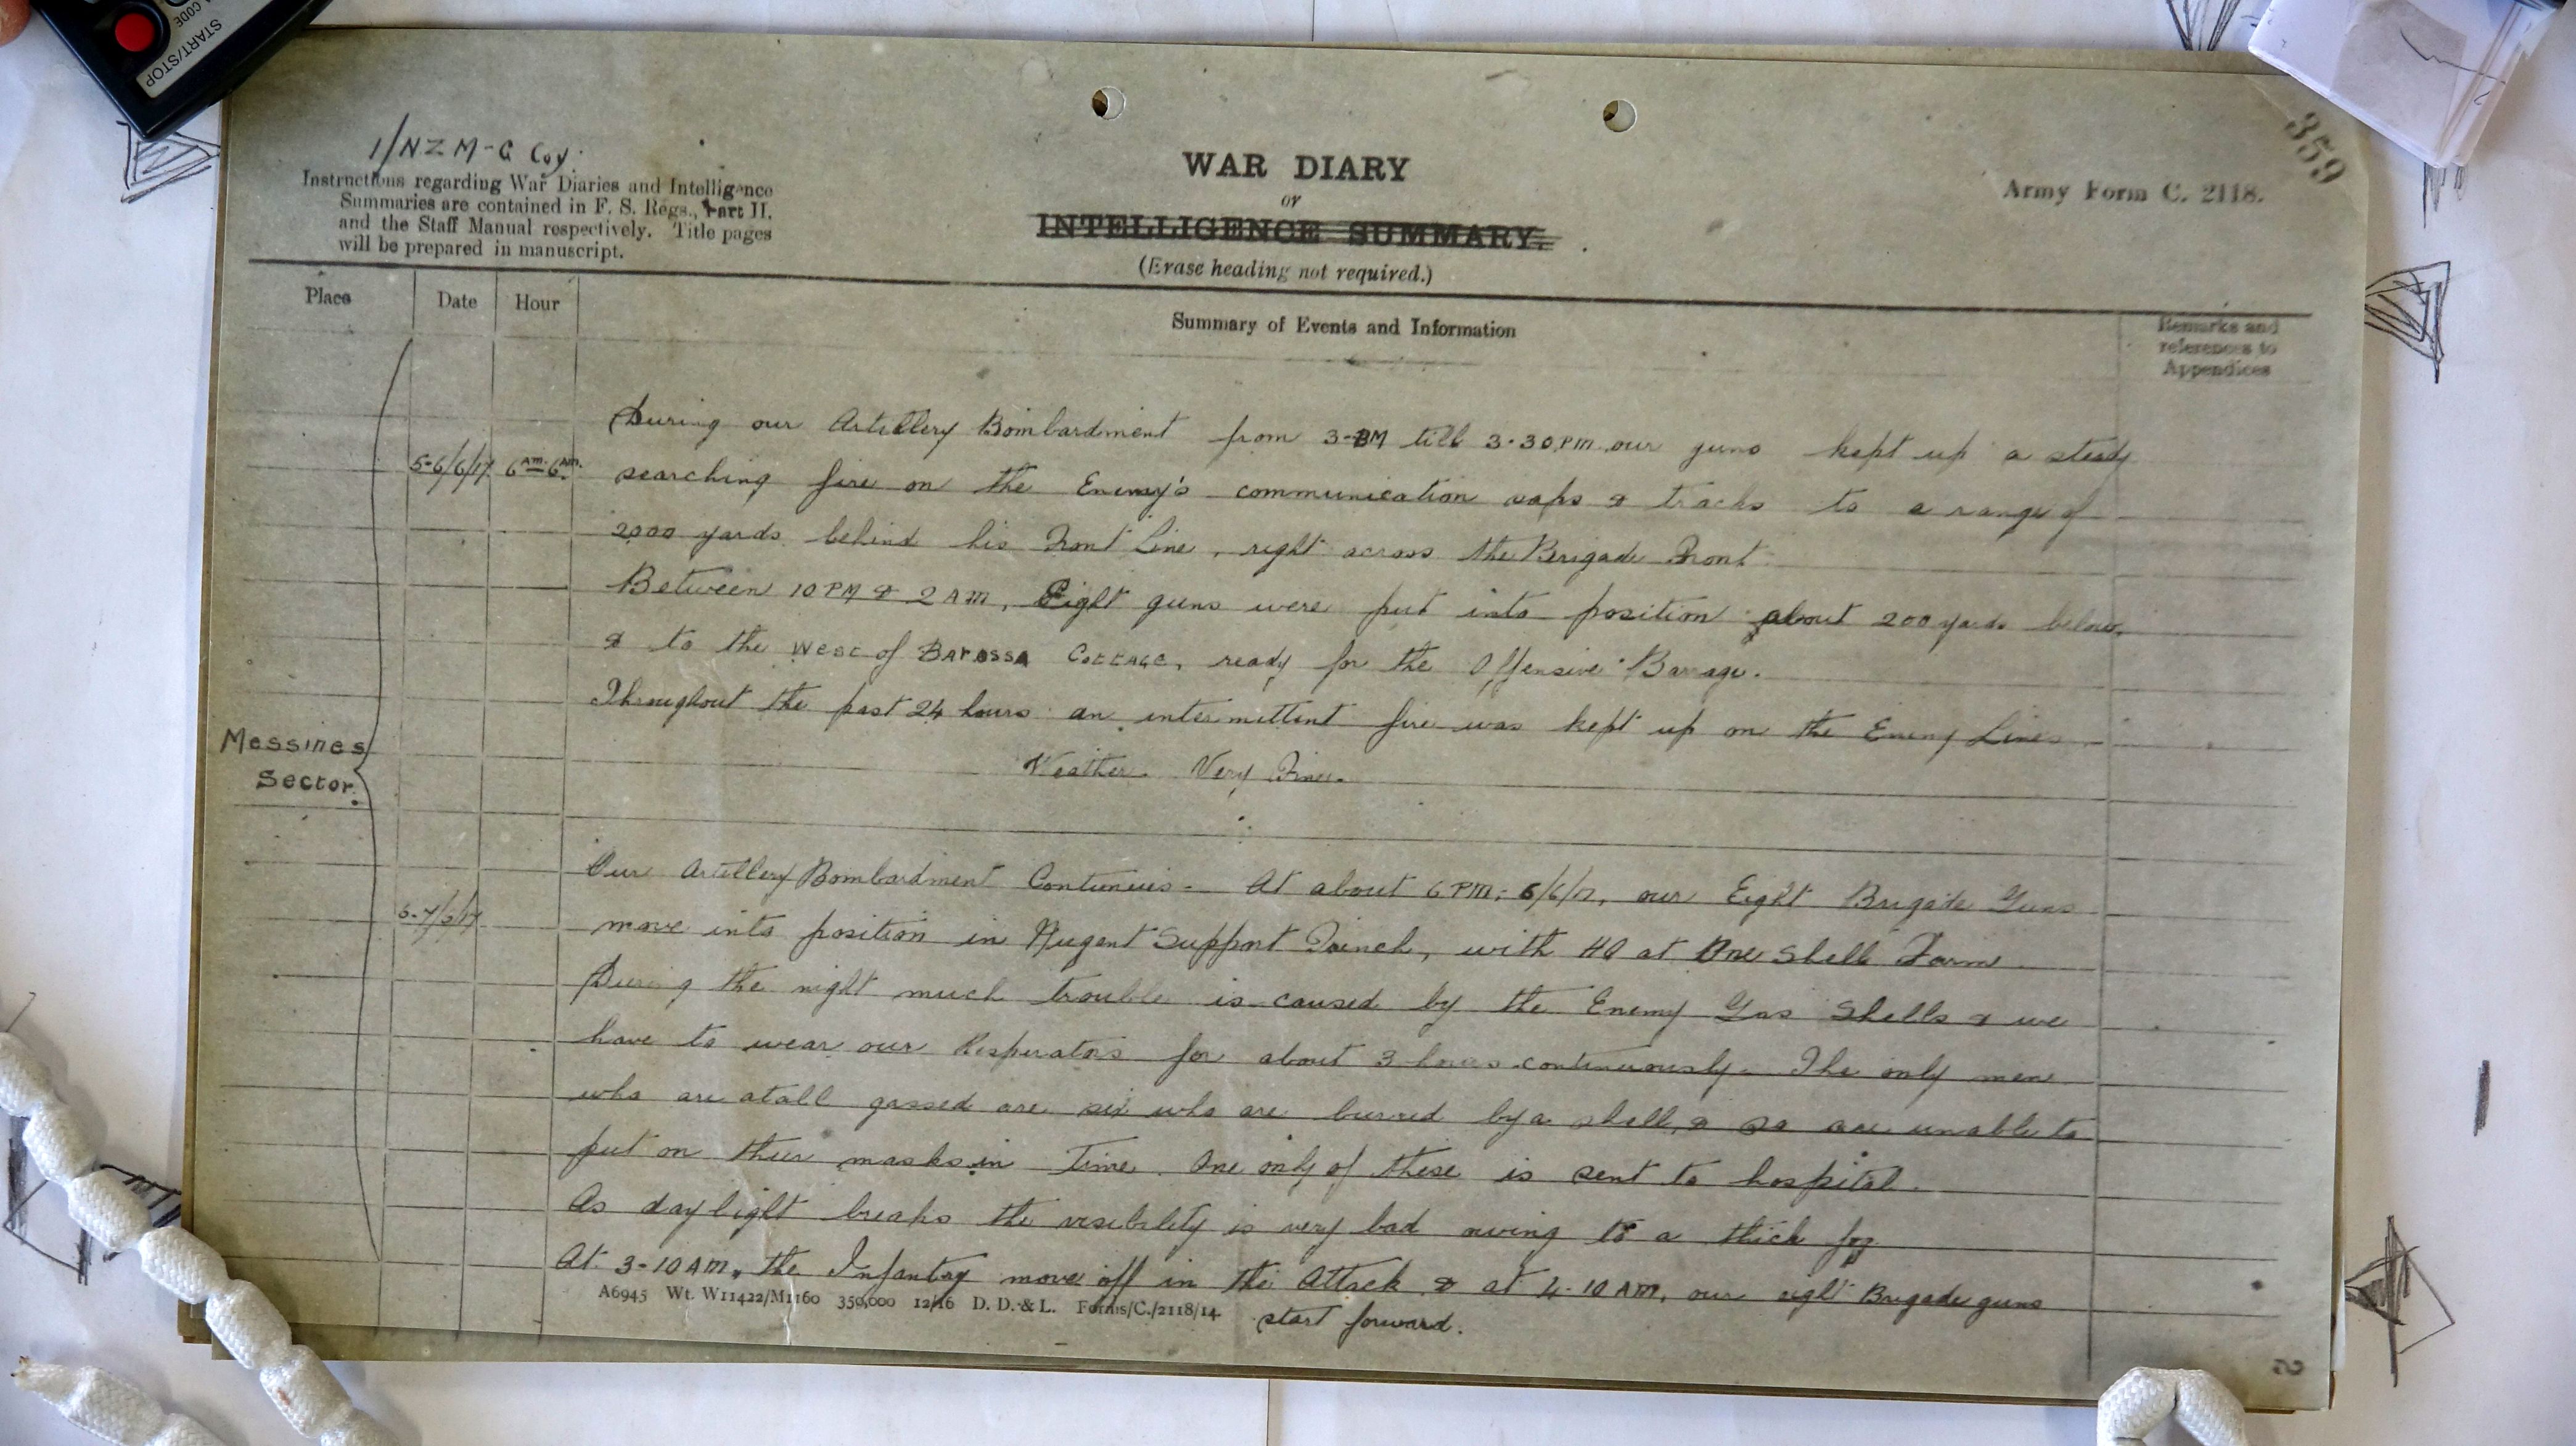 START/STOP
CODE
359
1/NZ M-G Coy.
Instructions regarding War Diaries and Intelligence
Summaries are contained in F. S. Regs., Part II.
and the Staff Manual respectively. Title pages
will be prepared in manuscript.
WAR DIARY
or
INTELLIGENCE SUMMARY.
(Erase heading not required.)
Army Form C. 2118.
Place
Date
Hour
Summary of Events and Information
Remarks and
references to
Appendices
During our Artillery Bombardment from 3-PM till 3.30 PM our guns kept up a steady
5-6/6/17 6 AM-6 AM. searching fire on the Enemy's communication saps & tracks to a range of
2000 yards behind his Front Line, right across the Brigade Front
Between 10 PM & 2 AM, Eight guns were put into position about 200 yards below
& to the West of Barossa Cottage, ready for the Offensive Barrage.
Throughout the past 24 hours an intermittent fire was kept up on the Enemy Lines
Messines
Sector.
Weather. Very Fine.
Our Artillery Bombardment Continues. At about 6 PM, 6/6/17, our Eight Brigade Guns
6-7/6/17 move into position in Nugent Support Trench, with HQ at One Shell Farm
During the night much trouble is caused by the Enemy Gas Shells & we
have to wear our Resperators for about 3 hours continuously. The only men
who are atall gassed are six who are burried by a shell, & so are unable to
put on their masks in Time. One only of these is sent to hospital.
As daylight breaks the visibility is very bad owing to a thick fog
At 3-10 AM, the Infantry move off in the Attack & at 4-10 AM, our eight Brigade guns
start forward.
A6945 Wt. W11422/M1160 350,000 12/16 D. D. & L. Forms/C./2118/14